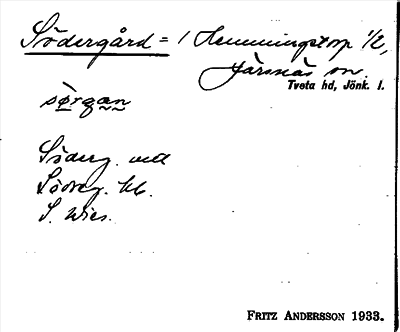 Södergård = 1 Hemmingstorp 1/2,
Järsnäs sn.
Tveta hd, Jönk. l.
sörgan
Söderg.
Södreg.
S.
FRITZ ANDERSSON 1933.